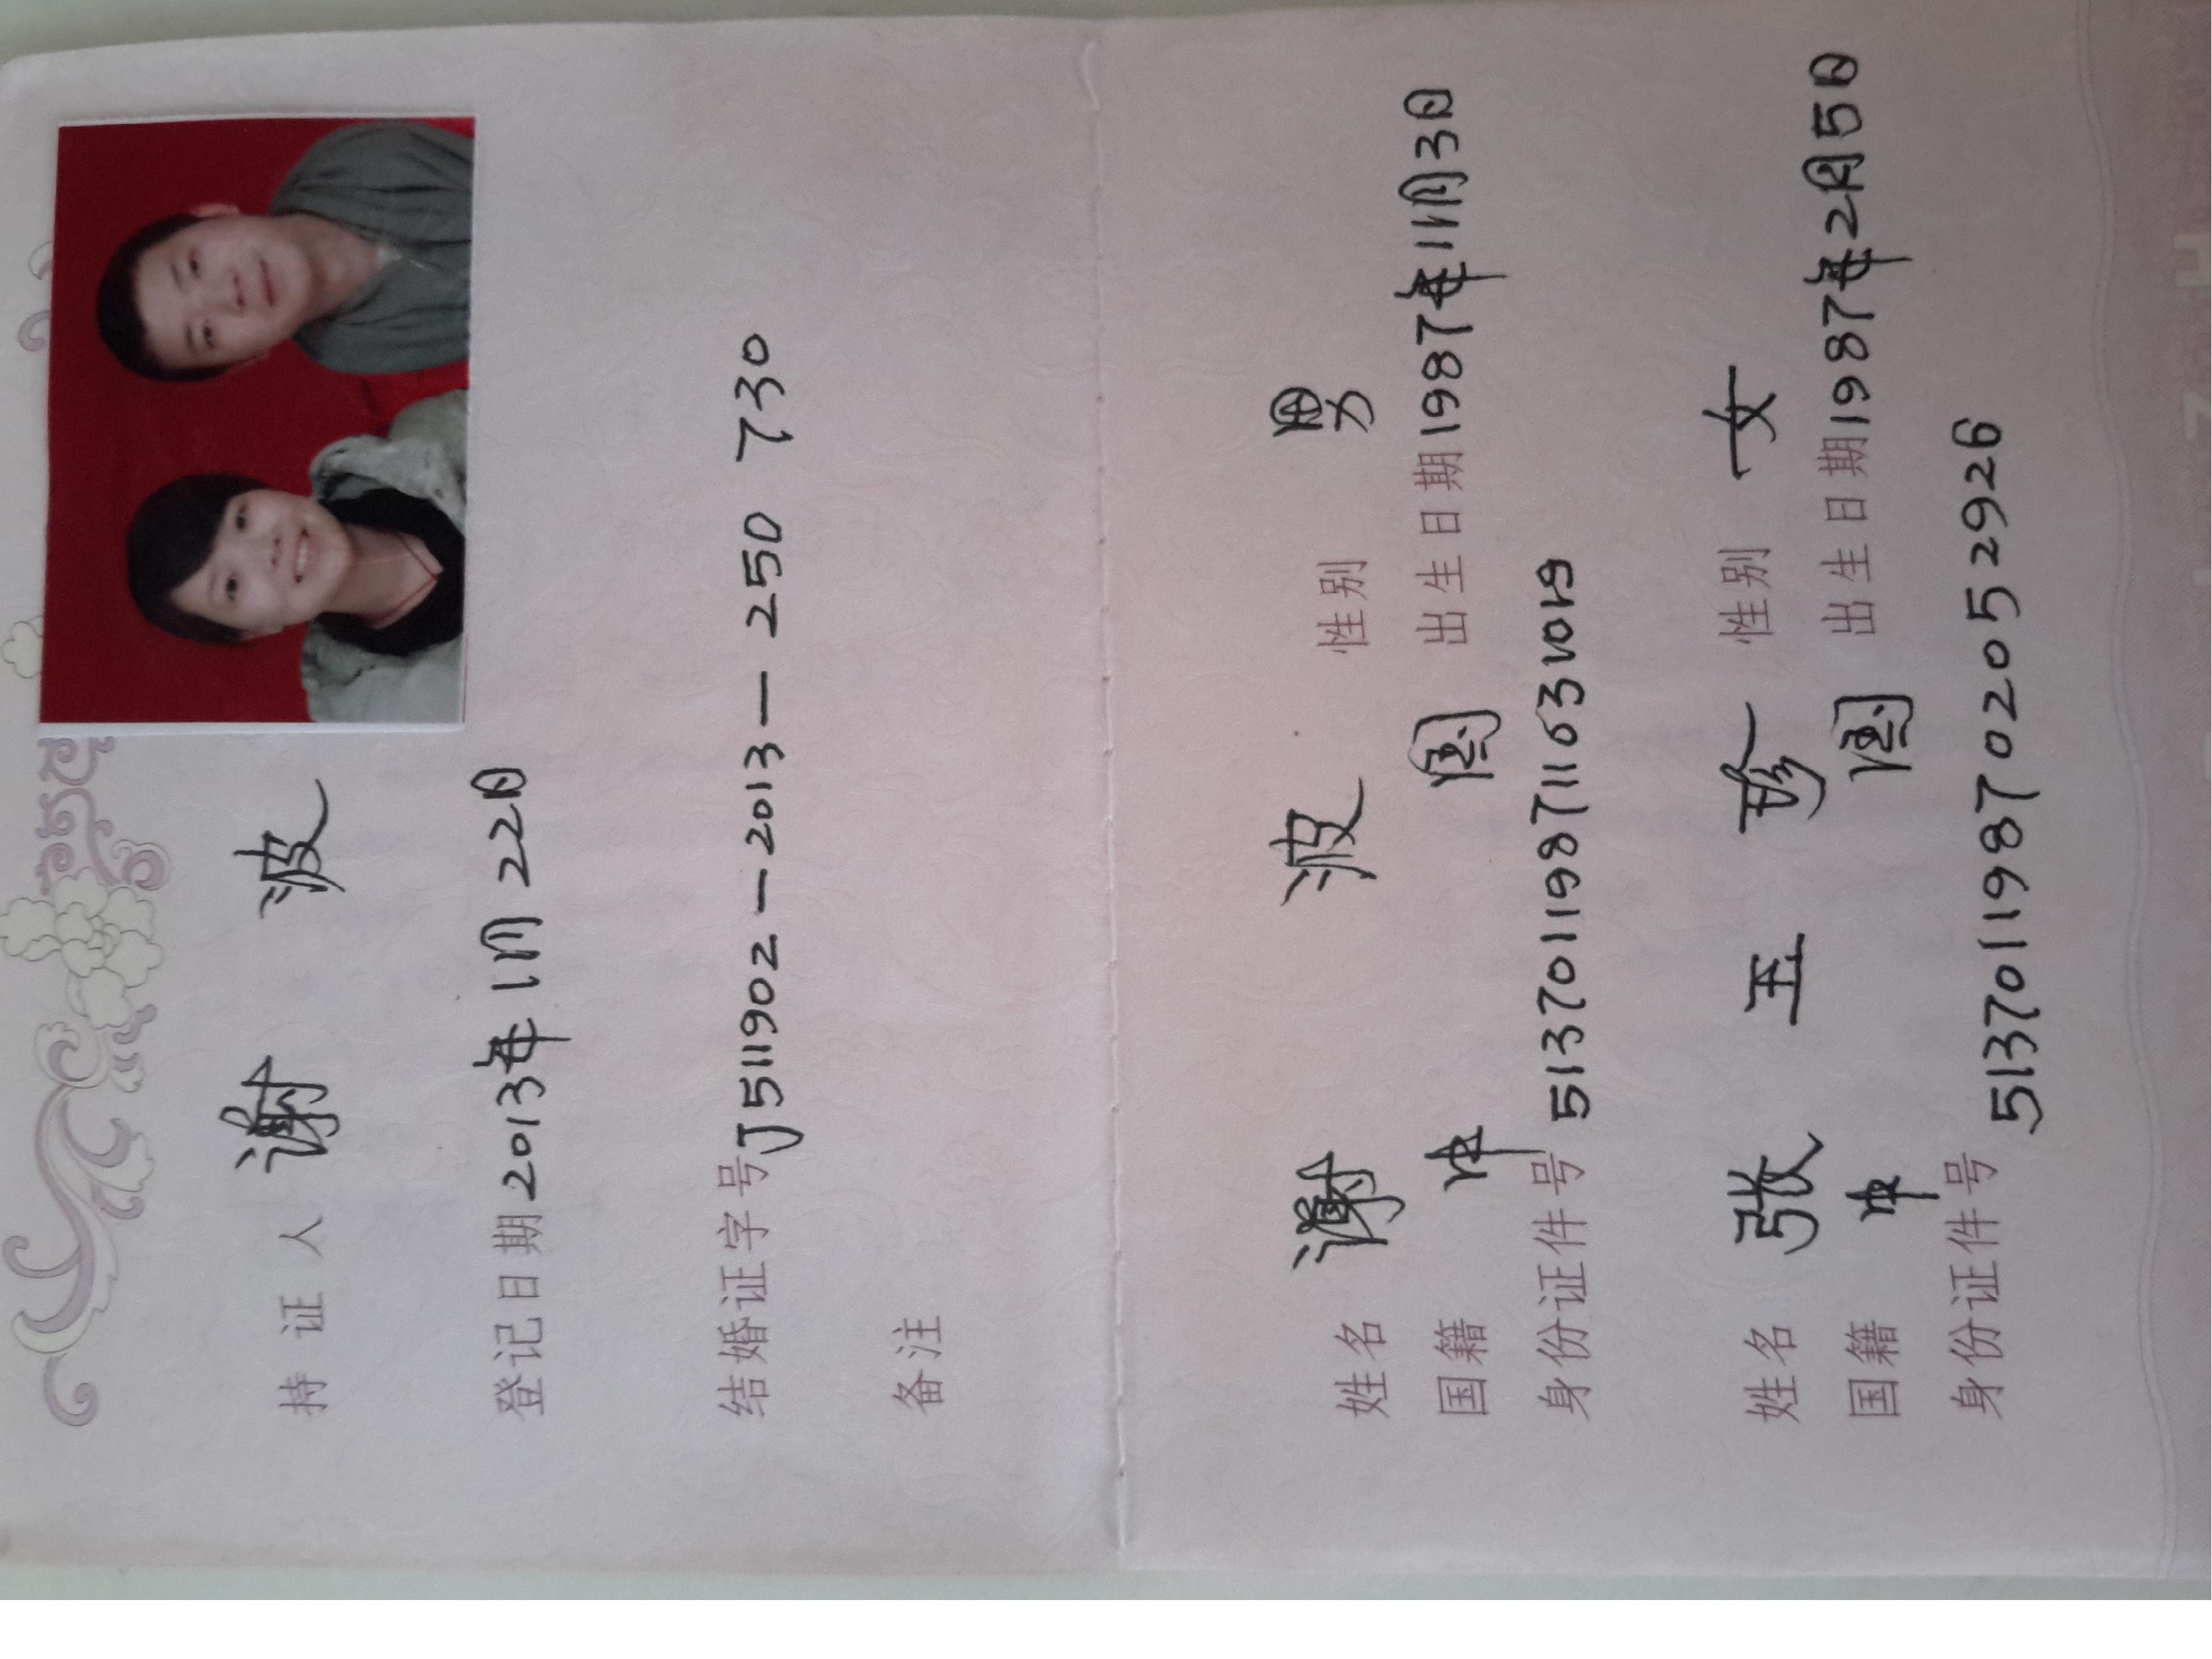 持证人 谢 波
登记日期 2013年1月22日
结婚证字号 J511902-2013-250730
备注
姓名 谢 波 性别 男
国籍 中 国 出生日期 1987年11月3日
身份证件号 513701198711031019
姓名 张 玉 珍 性别 女
国籍 中 国 出生日期 1987年2月5日
身份证件号 513701198702052926